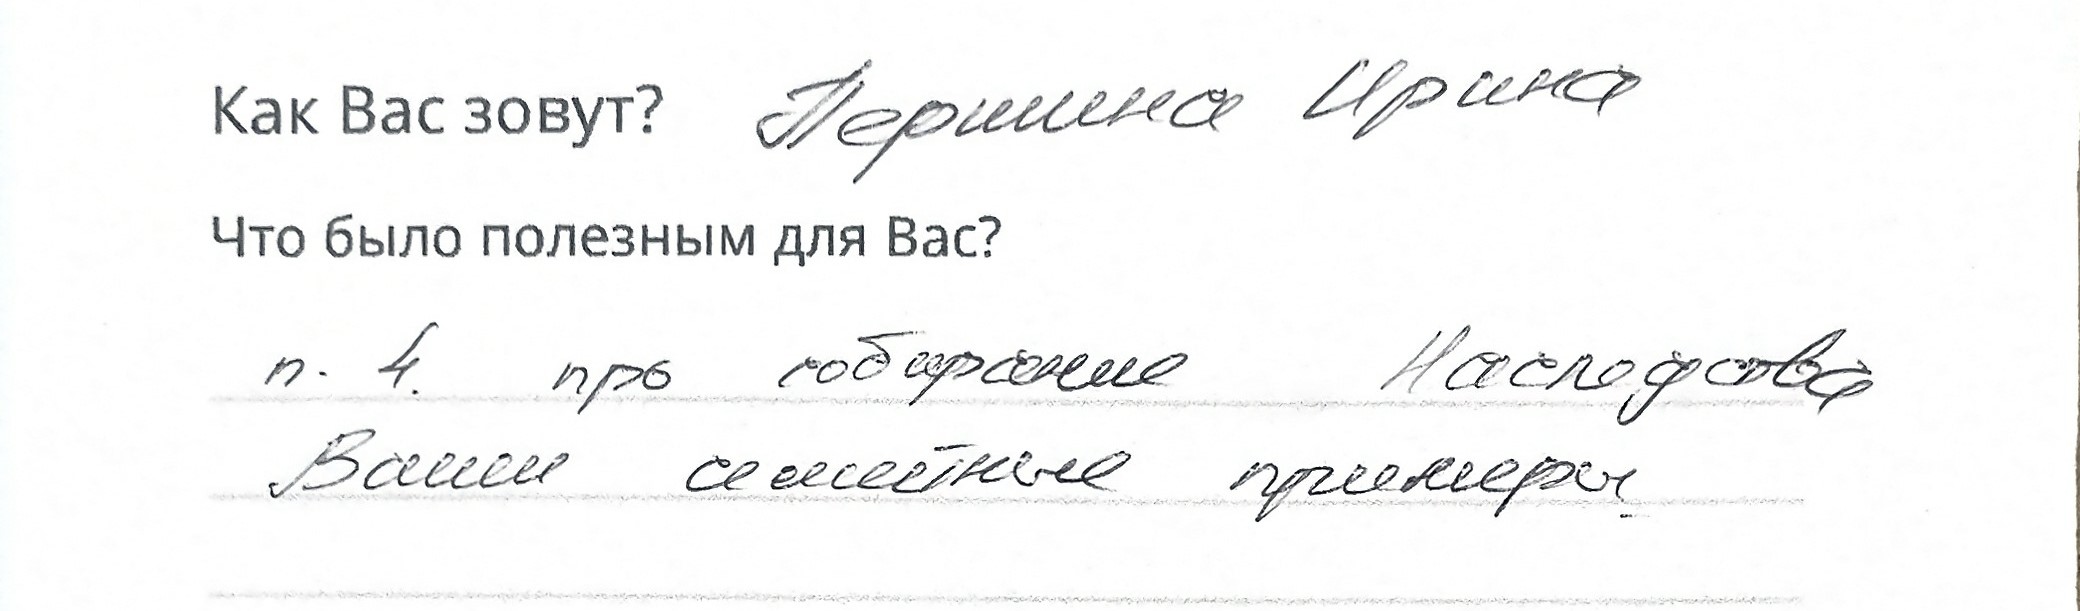 Как Вас зовут? Першина Ирина
Что было полезным для Вас?
п. 4. про собирание Наследства
Ваши семейные примеры